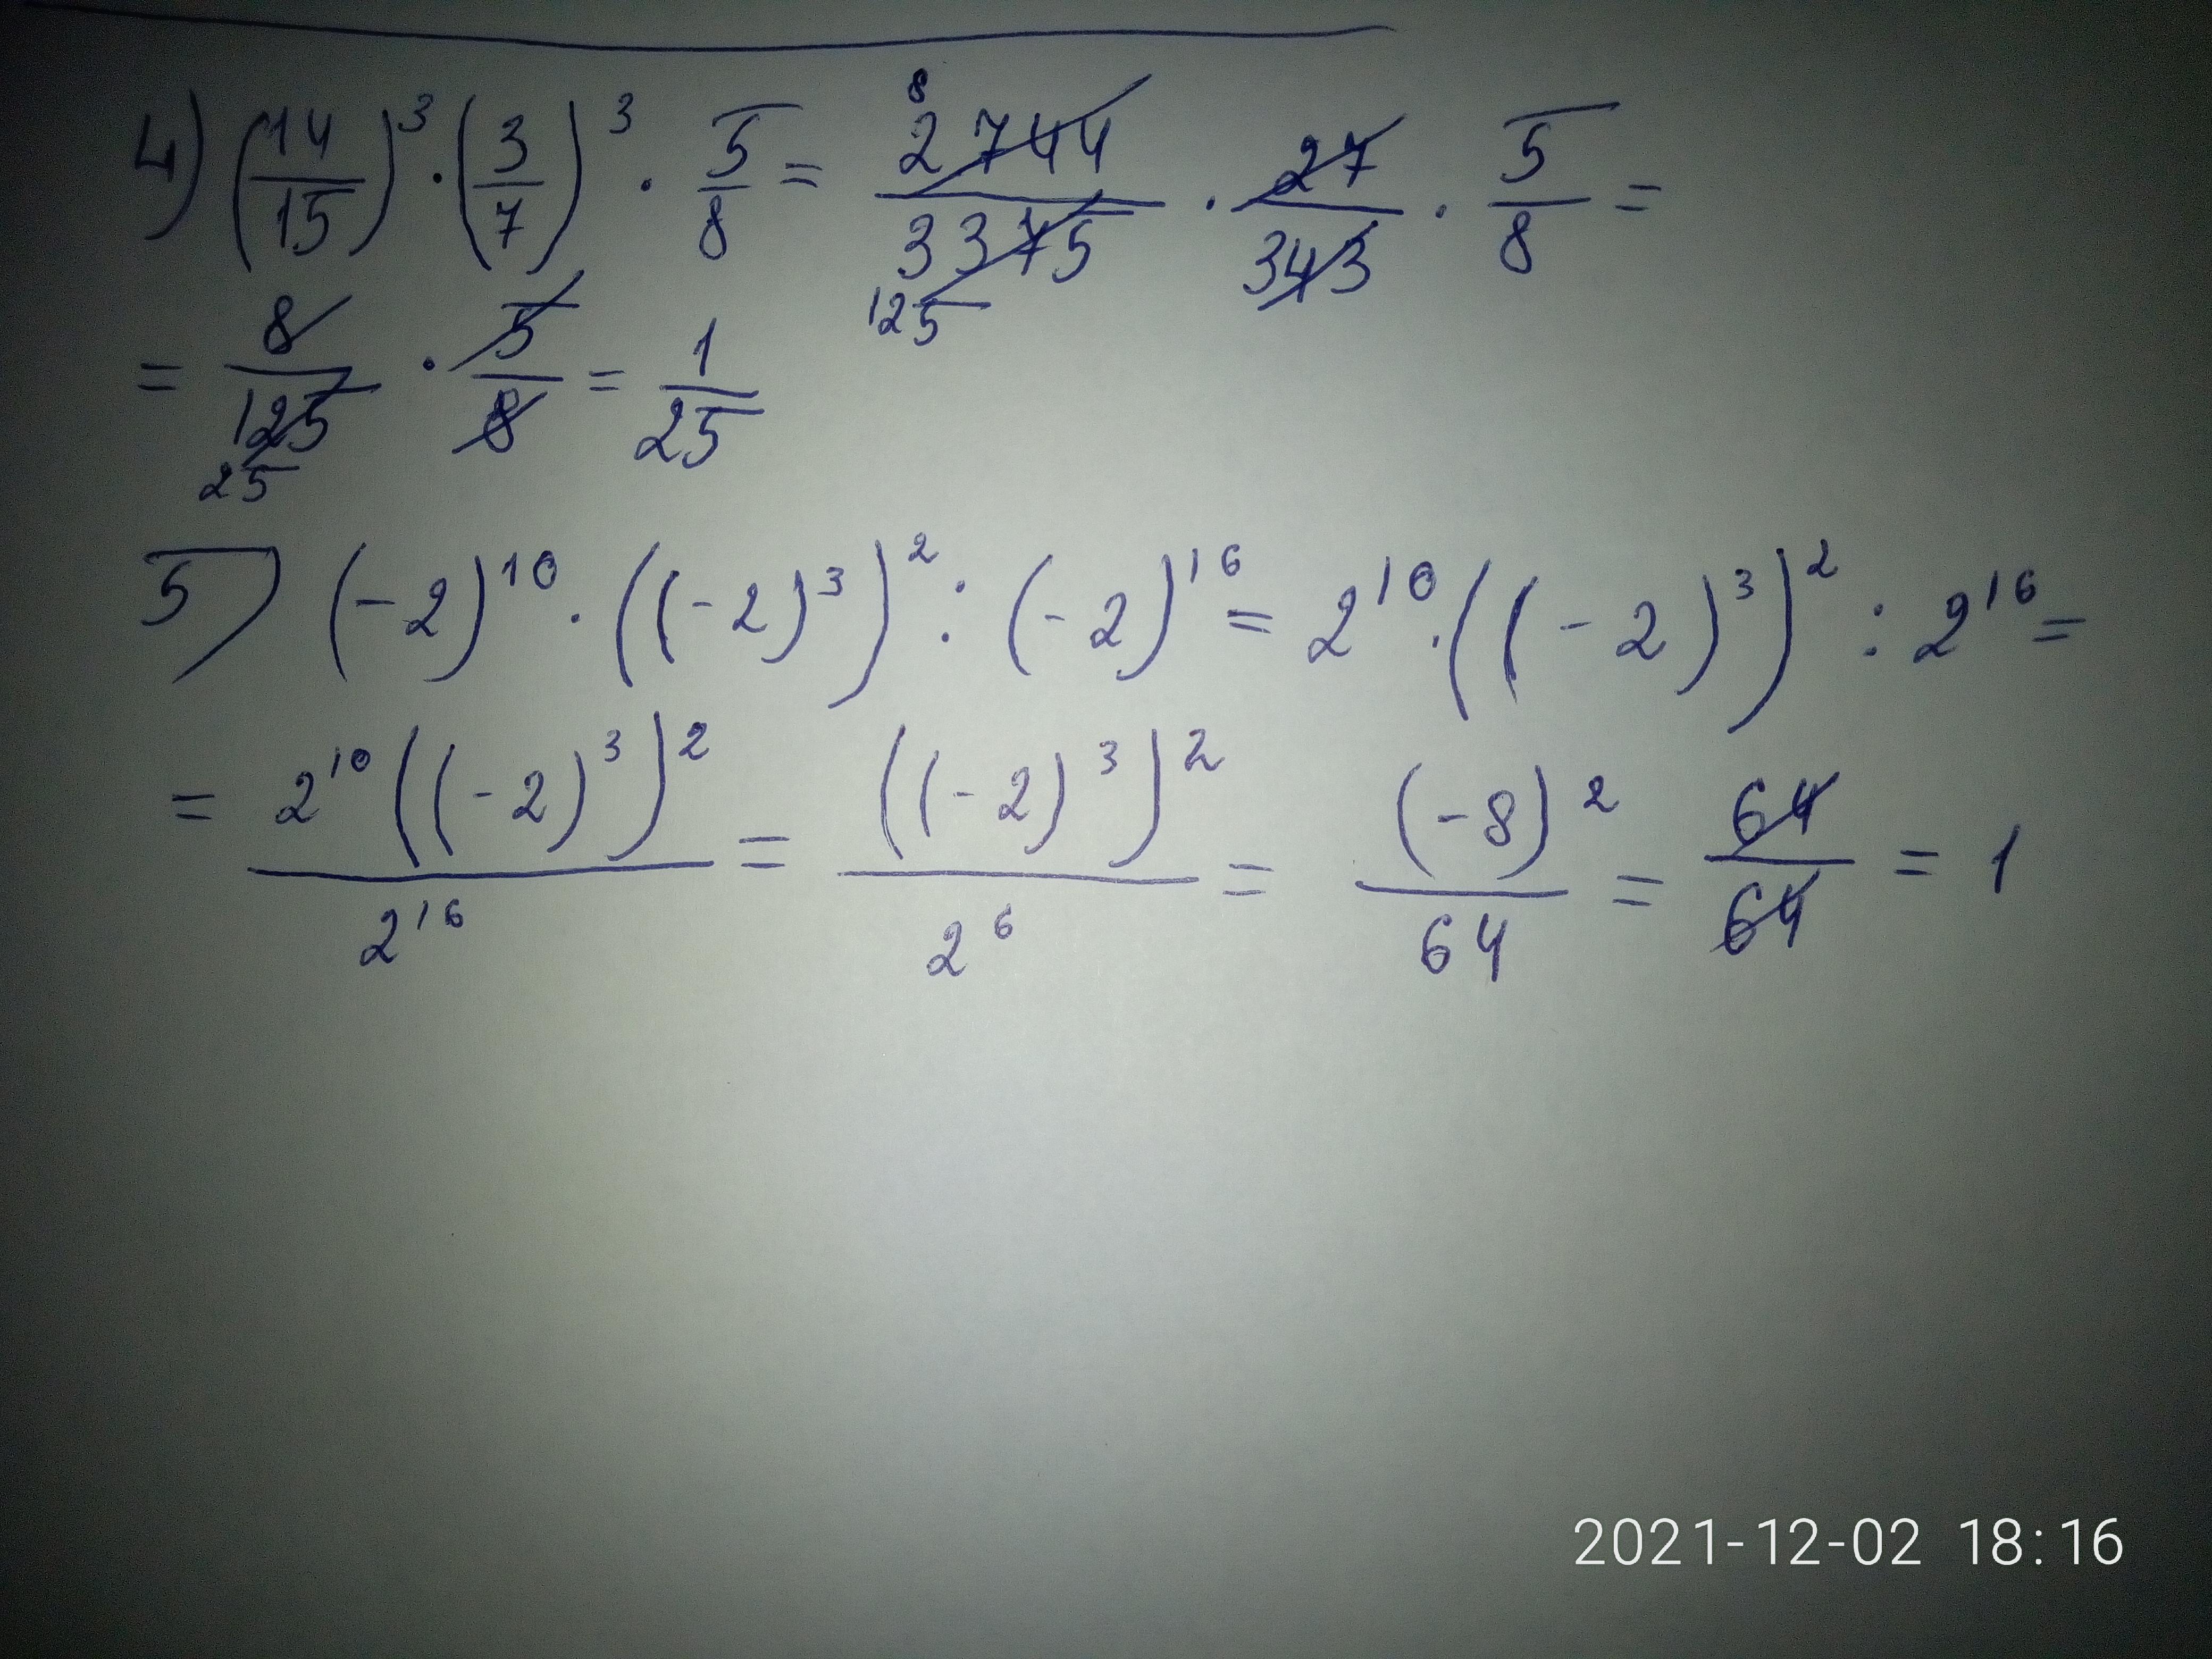 4) (14/15)³ · (3/7)³ · 5/8 = 2744/3375 · 27/343 · 5/8 =
8
125
= 8/125 · 5/8 = 1/25
25
5) (-2)¹⁰ · ((-2)³)² : (-2)¹⁶ = 2¹⁰ · ((-2)³)² : 2¹⁶ =
= 2¹⁰((-2)³)²/2¹⁶ = ((-2)³)²/2⁶ = (-8)²/64 = 64/64 = 1
2021-12-02 18:16